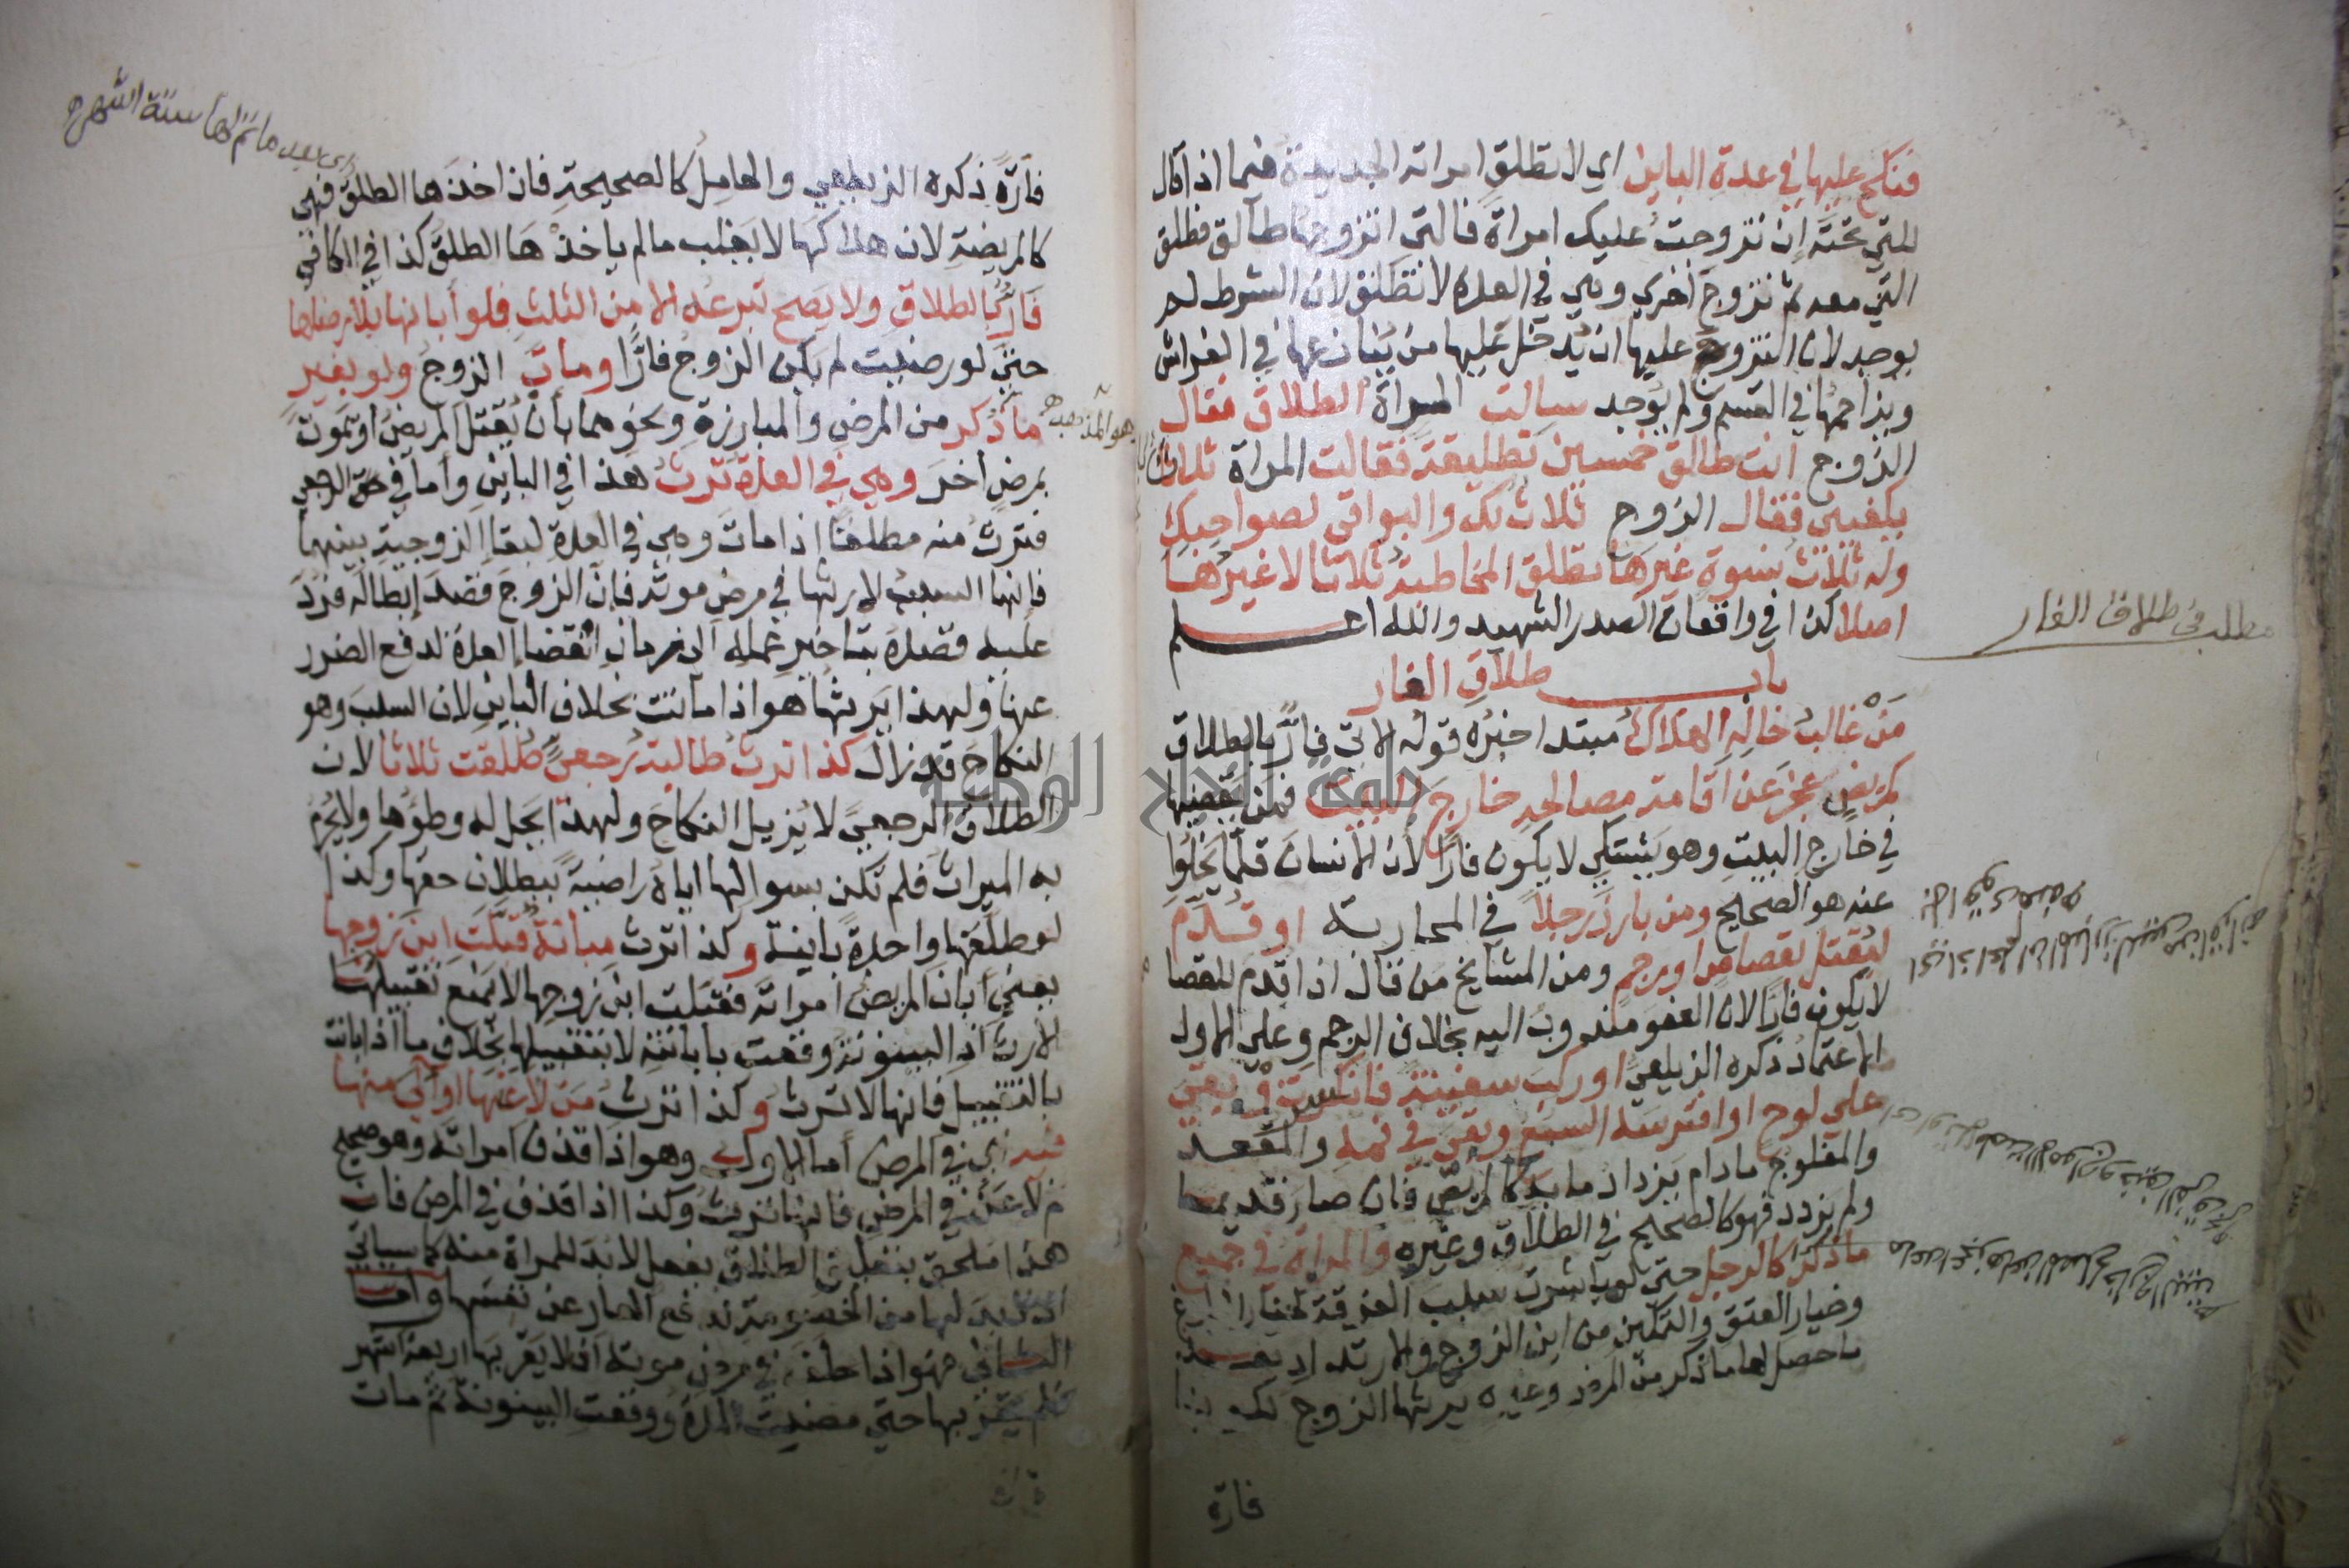 فنكح عليها في عدة الباين اي لا تطلق امراته الجديدة فيما اذا قال
للتي تحته ان تزوجت عليك امراة فالتي اتزوجها طالق فطلق
التي معه ثم تزوج اخري وهي في العدة لا تطلق لان الشرط لم
يوجد لان التزوج عليها ان يدخل عليها من ينازعها في الفراش
ويزاحمها في القسم ولم يوجد سالت المراة الطلاق فقال
الزوج انت طالق خمسين تطليقة فقالت المراة ثلاث
يكفيني فقال الزوج ثلاث لك والبواقي لصواحبك
وله ثلاث نسوة غيرها تطلق المخاطبة ثلاثا لا غيرها
اصلا كذا في واقعات الصدر الشهيد والله اعلم
باب طلاق الفار
مطلب في طلاق الفار
من غالب حاله الهلاك مبتدا خبره قوله الاتي فار بالطلاق
كمريض عجز عن اقامة مصالحه خارج البيت فمن يقضيها
في خارج البيت وهو يشتكي لا يكون فارا لان الانسان قلما يخلوا
عنه هو الصحيح ومن بارز رجلا في المحاربة او قدم
ليقتل لقصاص او رجم ومن المشايخ من قال اذا قدم للقصا
لا يكون فارا لان العفو مندوب اليه بخلاف الرجم وعلي الاول
الاعتماد ذكره الزيلعي او ركب سفينة فانكسرت وبقي
علي لوح او افترسه السبع وبقي في فمه والمقعد
والمفلوج مادام يزداد ما به كالمريض فان صار قديما
ولم يزدد فهو كالصحيح في الطلاق وغيره والمراة في جميع
ما ذكر كالرجل حتى لو باشرت سبب الفرقة
وخيار العتق والتمكين من ابن الزوج والارتداد بعد
ما حصل لها ما ذكر من المرض وغيره يرثها الزوج
فارة
اي بعد ما تم لها ستة اشهر
فارة ذكره الزيلعي والحامل كالصحيحة فان اخذها الطلق فهي
كالمريضة لان هلاكها لا يغلب ما لم ياخذها الطلق كذا في الكافي
فار بالطلاق ولا يصح تبرعه الا من الثلث فلو ابانها بلا رضاها
حتى لو رضيت لم يكن الزوج فارا ومات الزوج ولو بغير
ما ذكر من المرض والمبارزة ونحوهما بان يقتل المريض او يموت
بمرض اخر وهي في العدة ترث هذا في الباين واما في حق الرجعي
فترث منه مطلقا اذا مات وهي في العدة لبقا الزوجية بينهما
فانها السبب لارثها في مرض موته فان الزوج قصد ابطاله فرد
عليه قصده بتاخير عمله الي زمان انقضا العدة لدفع الضرر
عنها ولهذا يرثها هو اذا ماتت بخلاف الباين لان السبب وهو
النكاح قد زال كذا ترث طالبة رجعي طلقت ثلاثا لان
الطلاق الرجعي لا يزيل النكاح ولهذا يحل له وطؤها ولا يحرم
به الميراث فلم تكن بسوالها اياه راضية ببطلان حقها وكذا
لو طلقها واحدة باينة وكذا ترث مبانة قبلت ابن زوجها
يعني ابان المريض امراته فقبلت ابن زوجها لا يمنع تقبيلها
الارث اذ البينونة وقعت بابانته لا بتقبيلها بخلاف ما اذا بانت
بالتقبيل فانها لا ترث وكذا ترث من لاعنها او آلى منها
في المرض اما الاول وهو اذا قذف امراته وهو صحيح
ثم لاعن في المرض فانها ترث وكذا اذا قذف في المرض فان
هذا ملحق بتعليق الطلاق بفعل لا بد للمراة منه كما سياتي
اذ لا بد لها من الخصومة لدفع العار عن نفسها واما
الثاني فهو اذا حلف في مرض موته ان لا يقربها اربعة اشهر
فلم يقربها حتي مضت المدة ووقعت البينونة ثم مات
جامعة النجاح الوطنية